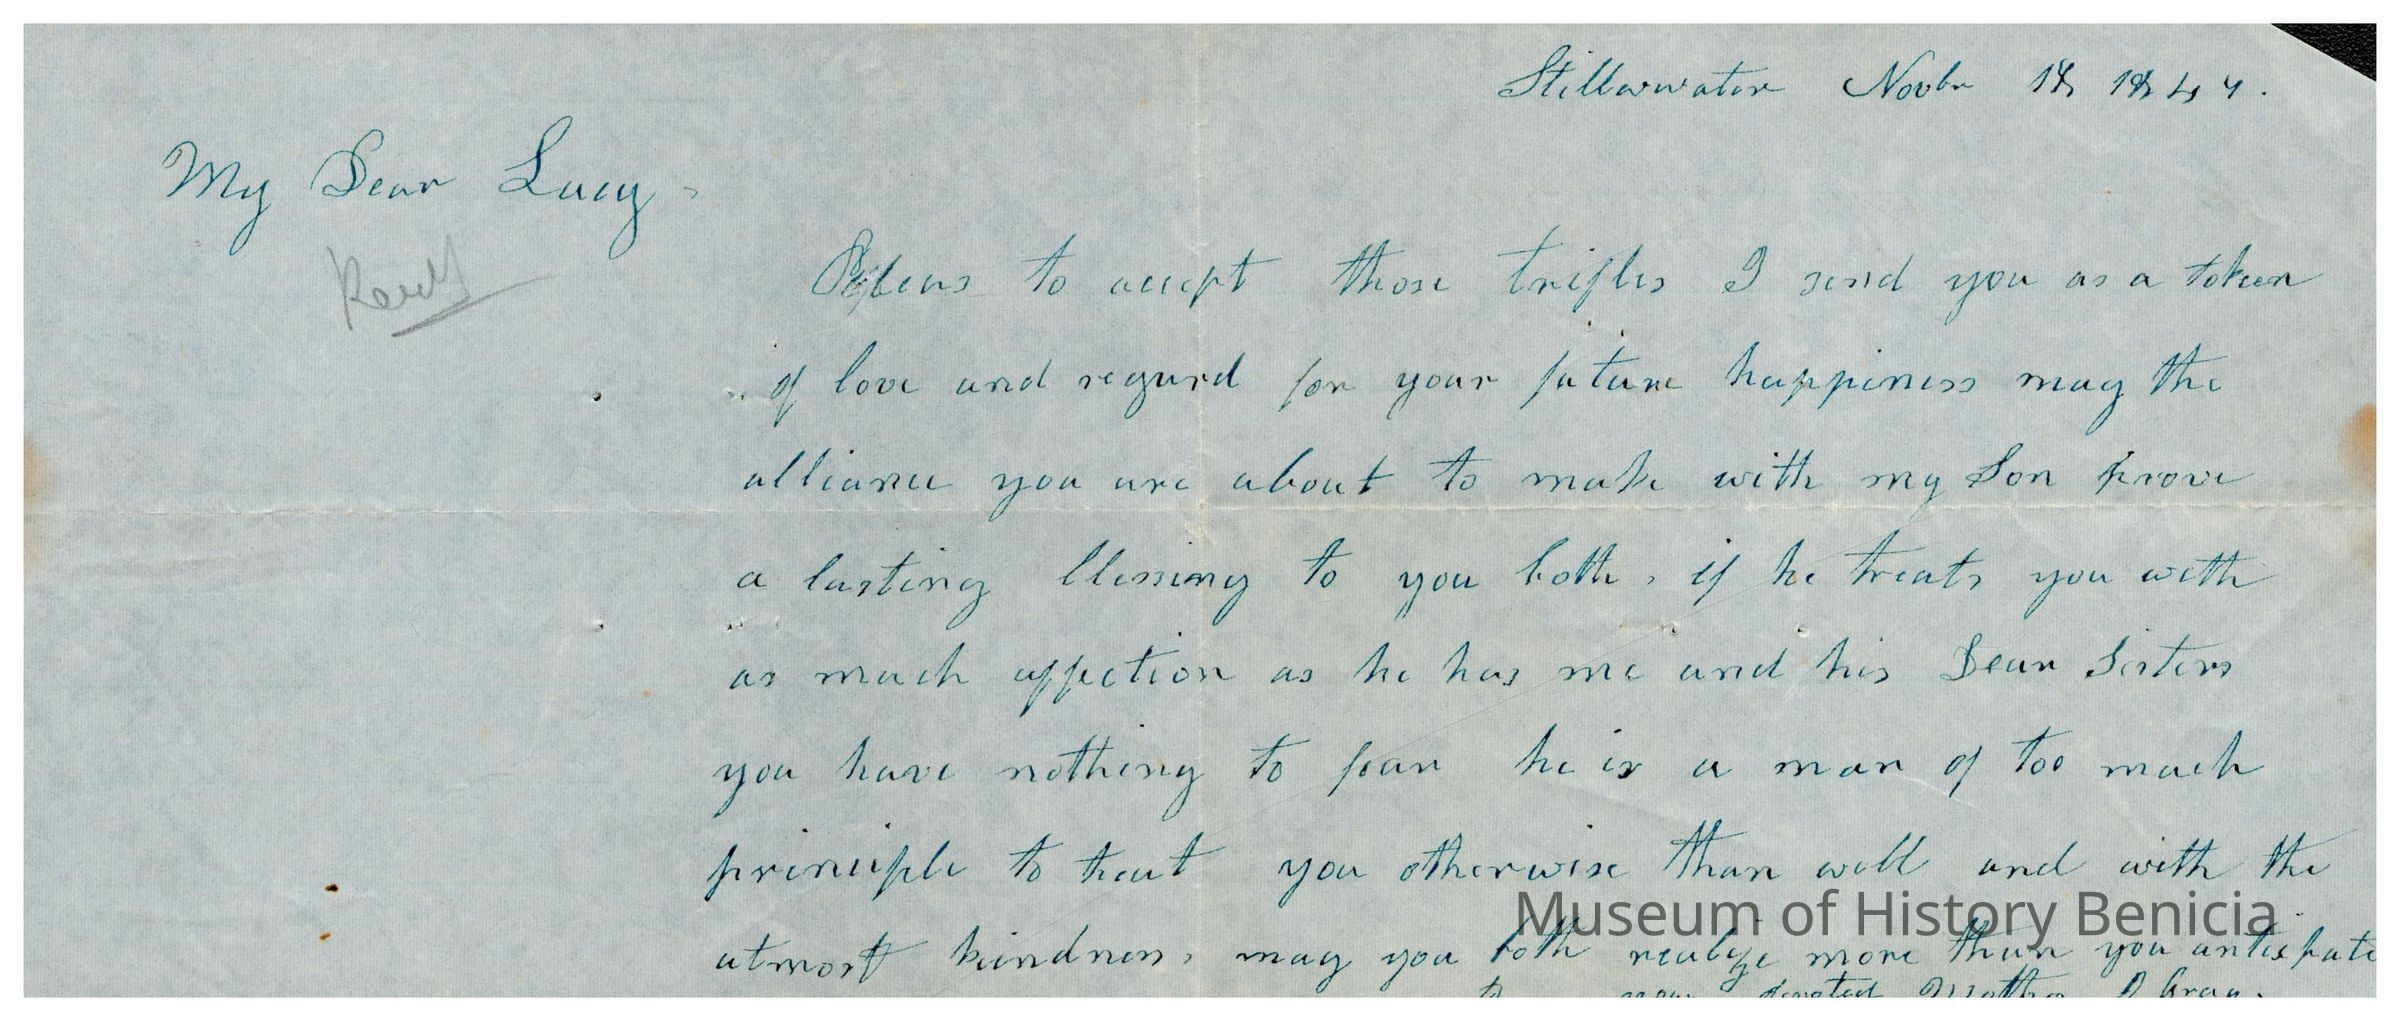 Stillwwater Novbr 18 1844.
My Dear Lucy,
Read
Pleas to accept those trifles I send you as a token
of love and regard for your future happiness may the
alliance you are about to make with my Son prove
a lasting blessing to you both, if he treats you with
as much affection as he has me and his Dear Sisters
you have nothing to fear he is a man of too much
principle to treat you otherwise than well and with the
utmost kindness, may you both realize more than you antisipate
your devoted Mother
Museum of History Benicia